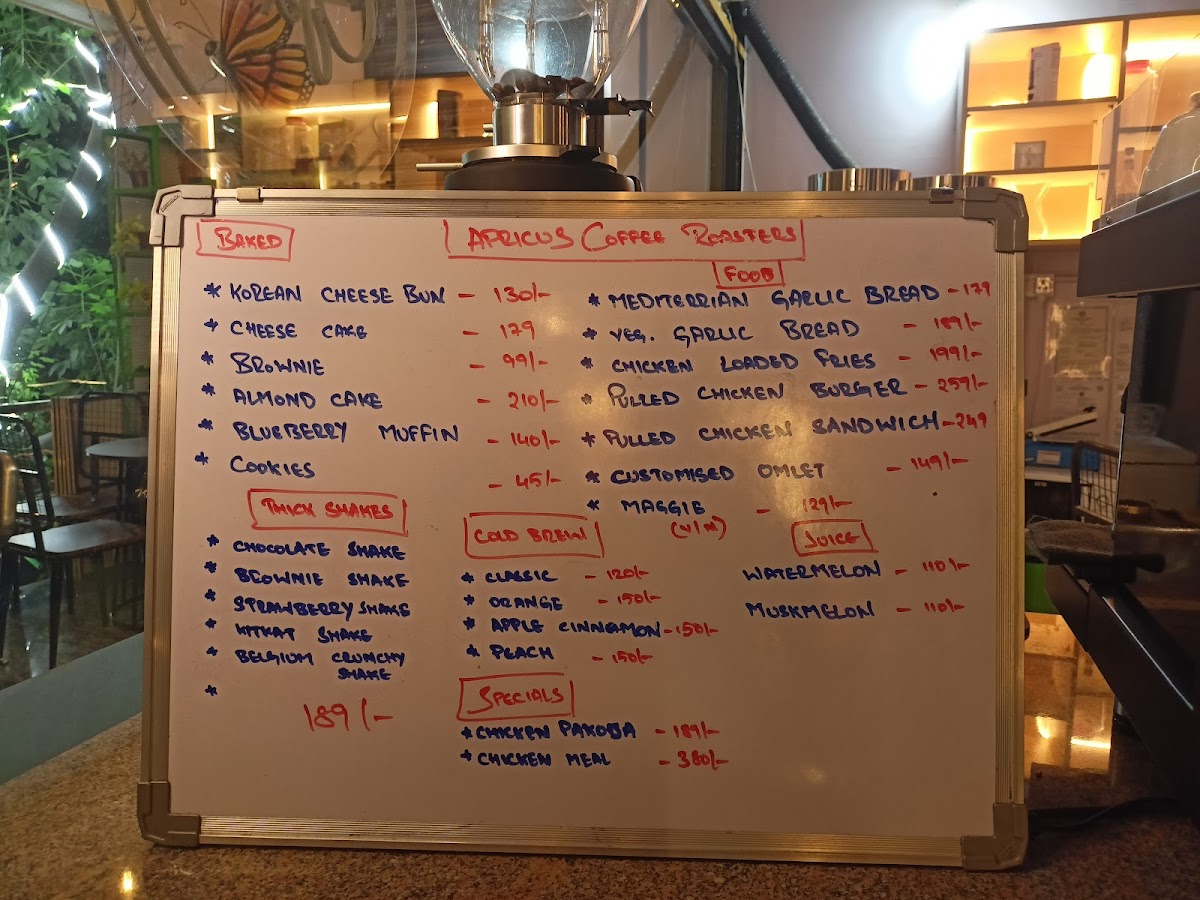 APRICUS COFFEE ROASTERS
BAKED
* KOREAN CHEESE BUN - 130/-
* CHEESE CAKE - 179
* BROWNIE - 99/-
* ALMOND CAKE - 210/-
* BLUEBERRY MUFFIN - 140/-
* COOKIES - 45/-
THICK SHAKES
* CHOCOLATE SHAKE
* BROWNIE SHAKE
* STRAWBERRY SHAKE
* KITKAT SHAKE
* BELGIUM CRUNCHY
SHAKE
*
189/-
FOOD
* MEDITERRIAN GARLIC BREAD - 179
* VEG. GARLIC BREAD - 189/-
* CHICKEN LOADED FRIES - 199/-
* PULLED CHICKEN BURGER - 259/-
* PULLED CHICKEN SANDWICH - 249
* CUSTOMISED OMLET - 149/-
* MAGGIE - 129/-
(V/N)
COLD BREW
* CLASSIC - 120/-
* ORANGE - 150/-
* APPLE CINNAMON - 150/-
* PEACH - 150/-
JUICE
WATERMELON - 110/-
MUSKMELON - 110/-
SPECIALS
* CHICKEN PAKODA - 189/-
* CHICKEN MEAL - 380/-